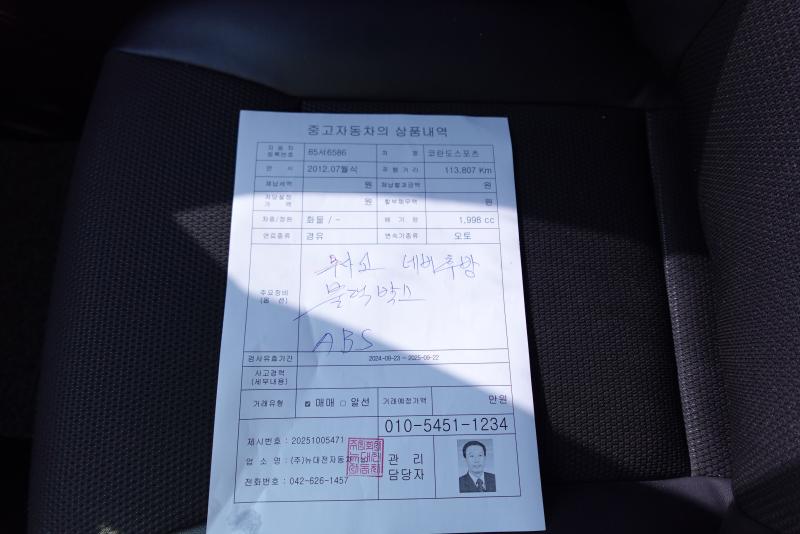 중고자동차의 상품내역
자동차등록번호 85서6586 차명 코란도스포츠
연식 2012.07월식 주행거리 113,807 Km
체납세액 원 체납벌과금액 원
저당설정가액 원 할부채무액 원
차종/정원 화물 / - 배기량 1,998 cc
연료종류 경유 변속기종류 오토
주요장비(옵션)
무사고 네비 후방
블랙박스
ABS
검사유효기간 2024-08-23 ~ 2025-08-22
사고경력(세부내용)
거래유형 매매 알선 거래예정가액 만원
010-5451-1234
제시번호 : 20251005471
업 소 명 : (주)뉴대전자동차
전화번호 : 042-626-1457
관 리
담당자